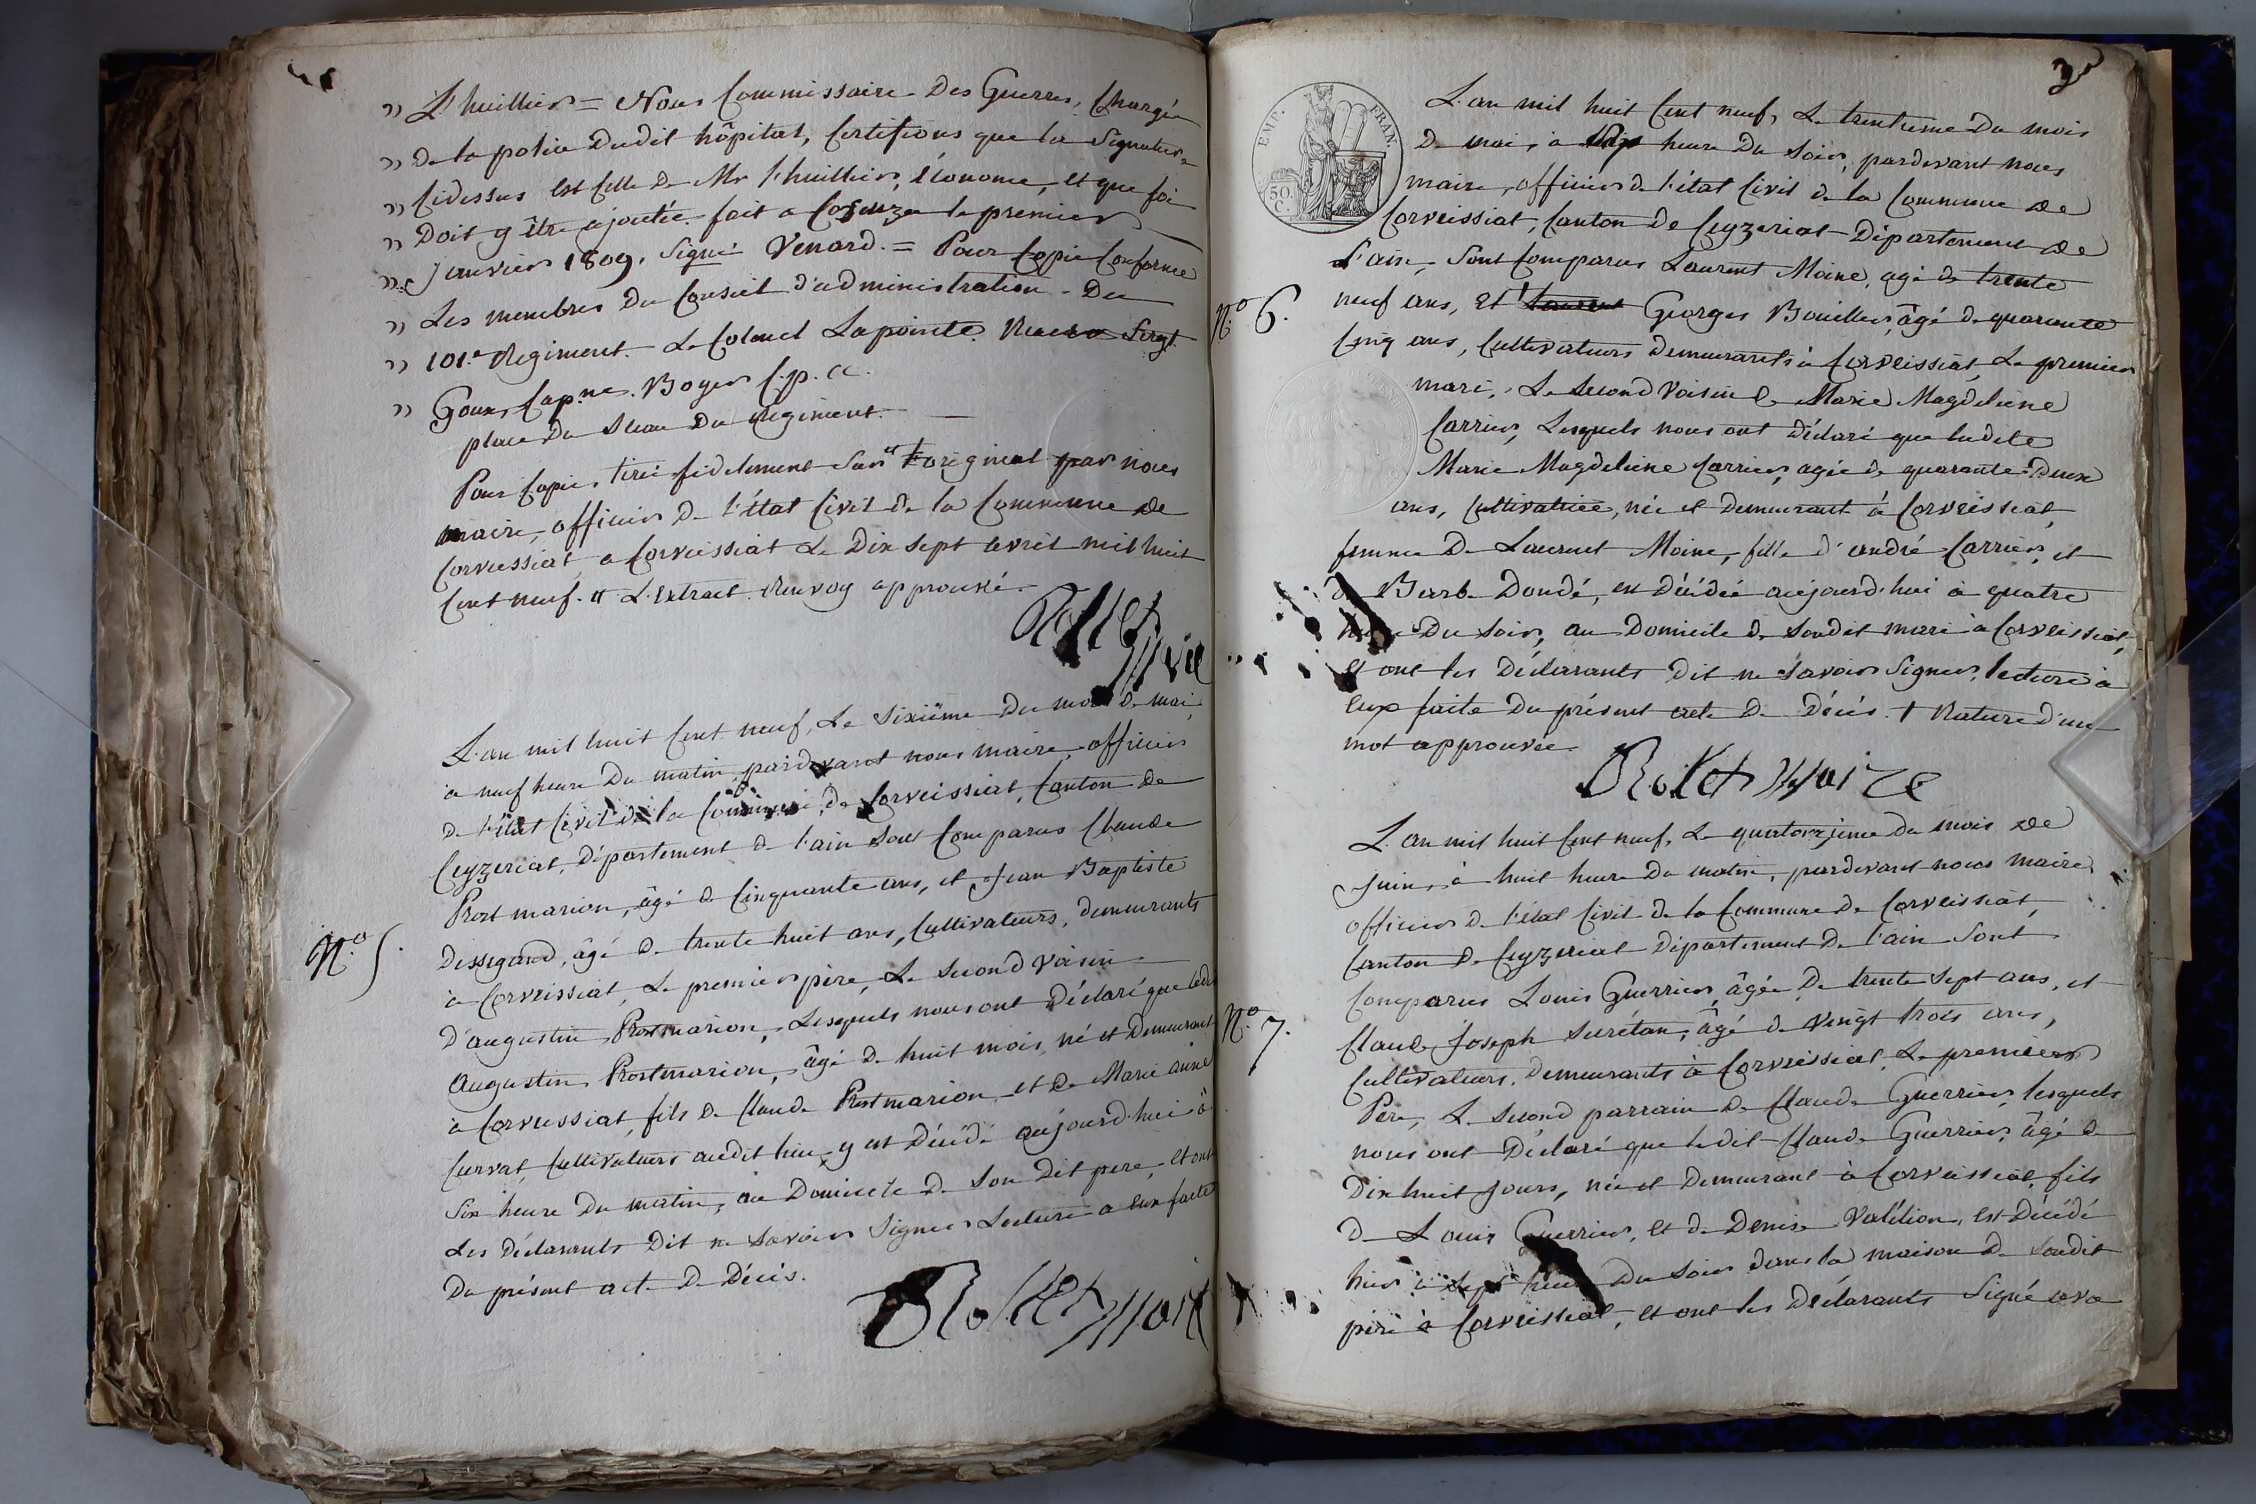 » L'huillier = Nous Commissaire Des Guerres, Chargé
» De la police Dudit hôpital, Certifions que la Signature
» Cidessus est celle De Mr l'huillier, économe, et que foi
» Doit y être ajoutée. fait a le premier
» Janvier 1809. Signé Venard. = Pour Copie Conforme
» Les membres Du Conseil D'administration Du
» 101.e Régiment. Le Colonel Lapointe. Sergt.
» Goux, Capne. Boyer C.p.a.
place Du Sceau Du Régiment.
Pour Copie, tirée fidelement Sur l'original par nous
maire, officier De l'état Civil De la Commune De
Corveissiat, a Corveissiat Le Dix Sept avril mil huit
Cent neuf. L'extrait Renvoy approuvé.
Rollet Maire
L'an mil huit Cent neuf, Le Sixiême Du mois De mai
a neuf heure Du matin, pardevant nous maire officier
De l'état Civil De la Commune De Corveissiat, Canton De
Ceyzeriat, Département De l'ain Sont Comparus Claude
Prost marion, âgé De Cinquante ans, et Jean Baptiste
N.o 5.
Dessigand, âgé De trente huit ans, Cultivateurs, Demeurants
à Corveissiat, Le premier père, Le Second Voisin
D'augustin Prostmarion, Lesquels nous ont Déclaré que ledit
Augustin Prostmarion, âgé De huit mois, né et Demeurant
à Corveissiat, fils De Claude Prostmarion, et De Marie anne
Curvat, Cultivateurs audit lieu, y est Décédé aujourd'hui à
Six heure Du matin, au Domicile De Son Dit pere, et ont
Les Déclarants Dit ne Savoir Signer Lecture a eux faite
Du présent acte De Décès.
Rollet Maire
3
EMP. FRAN.
50 C.
L'an mil huit Cent neuf, Le trentieme Du mois
De mai, à heure Du Soir, pardevant nous
maire, officier De l'état Civil De la Commune De
Corveissiat, Canton De Ceyzeriat Département De
l'ain, Sont Comparus Laurent Moine, agé De trente
N.o 6.
neuf ans, et Laurent Georges Bouiller, âgé De quarante
Cinq ans, Cultivateurs Demeurants à Corveissiat, Le premier
mari, Le Second Voisin De Marie Magdeleine
Carrier, Lesquels nous ont Déclaré que ladite
Marie Magdeleine Carrier, agée De quarante Deux
ans, Cultivatrice, née et Demeurant à Corveissiat,
femme De Laurent Moine, fille D'andré Carrier, et
De Barbe Dondé, est Décédée aujourd'hui à quatre
heure Du Soir, au Domicile De Sondit mari à Corveissiat,
et ont les Déclarants Dit ne Savoir Signer, lecture à
eux faite Du présent acte De Décès. † Rature D'un
mot approuvée.
Rollet Maire
L'an mil huit Cent neuf, Le quatorzieme Du mois De
Juin, à huit heure Du matin, pardevant nous maire
officier De l'état Civil De la Commune De Corveissiat,
Canton De Ceyzeriat Département De l'ain Sont
Comparus Louis Guerrier, âgée De trente Sept ans, et
N.o 7.
Claude Joseph Surétan, âgé De Vingt trois ans,
Cultivateurs, Demeurants à Corveissiat, Le premier
Père, Le Second parrain De Claude Guerrier, lesquels
nous ont Déclaré que ledit Claude Guerrier, âgé De
Dix huit Jours, né et Demeurant à Corveissiat, fils
De Louis Guerrier, et De Denise Valétion, est Décédé
hier à Sept heure Du Soir Dans la maison De Sondit
père à Corveissiat, et ont les Déclarants Signé ave